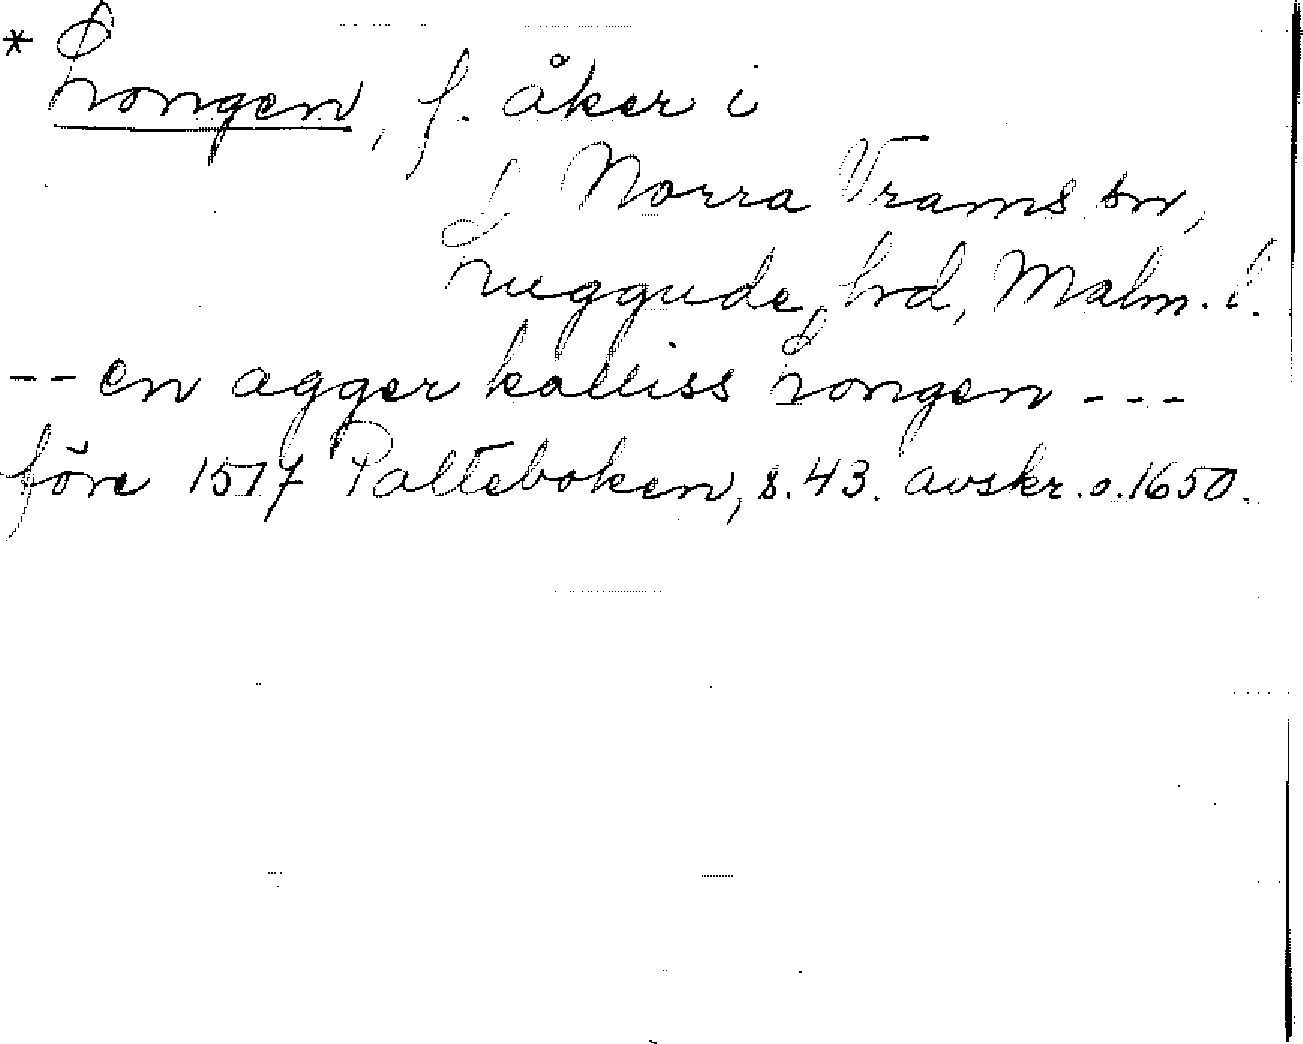 * Longen, f. åker i
Norra Vrams sn,
Luggude hd, Malm. l.
-- en agger kalliss Longen ---
före 1517 Palteboken, s. 43. avskr. o. 1650.